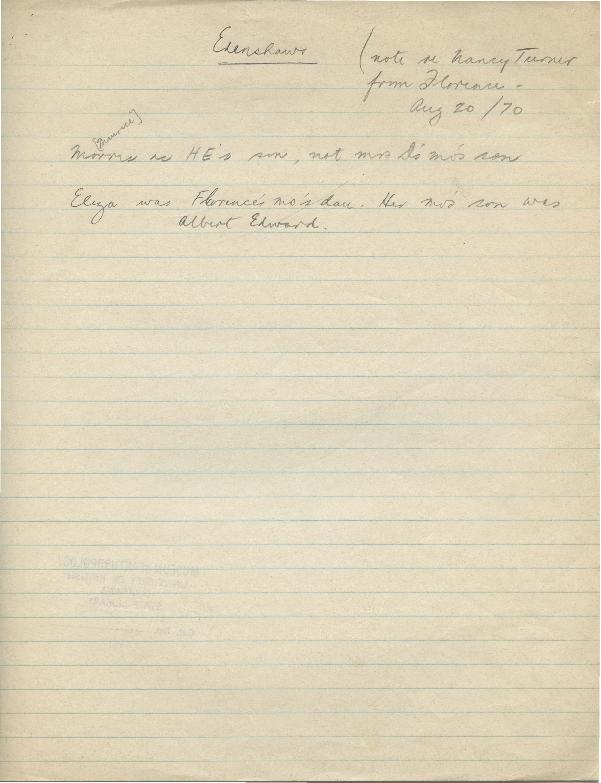 Edenshaws
(note re Nancy Turner
from Florence -
Aug 20/70
Morris is HE's son, not mrs D's mo's son
Eliza was Florence's mo's dau. Her mo's son was
Albert Edward.